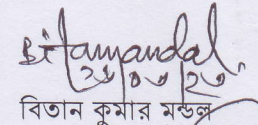 Bitamandal
২৯|০৮|২৩
বিতান কুমার মন্ডল